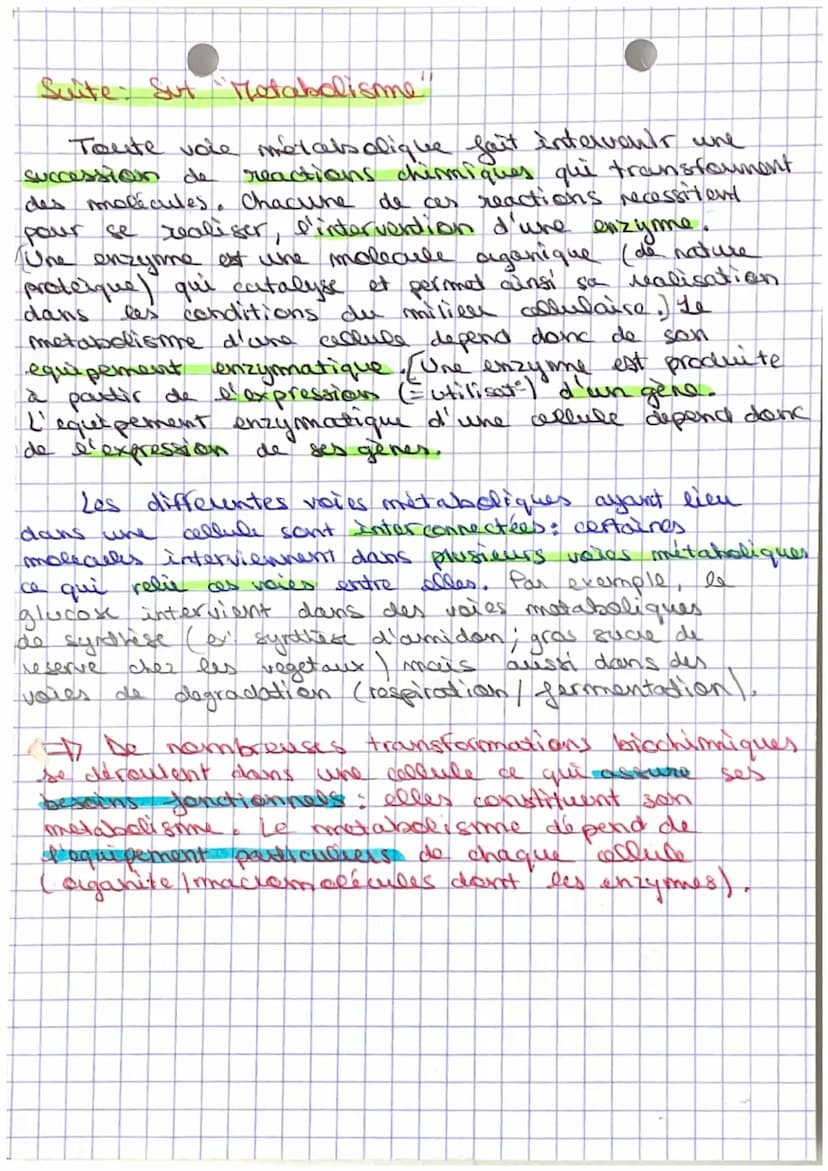 Suite: Svt "Metabolisme"
Toute voie métabolique fait intervenir une
succession de reactions chimiques qui transforment
des molécules. Chacune de ces reactions necessitent
pour se realiser, l'intervention d'une enzyme.
[Une enzyme est une molecule organique (de nature
proteique) qui catalyse et permet ainsi sa realisation
dans les conditions du milieu cellulaire.] Le
metabolisme d'une cellule depend donc de son
equipement enzymatique. [Une enzyme est produite
à partir de l'expression (= utilisat°) d'un gène.
L'equipement enzymatique d'une cellule depend donc
de l'expression de ses gènes.
Les differentes voies métaboliques ayant lieu
dans une cellule sont interconnectées: certaines
molecules interviennent dans plusieurs voies métaboliques
ce qui relie ces voies entre elles. Par exemple, le
glucose intervient dans des voies metaboliques
de synthèse (ex: synthèse d'amidon; gros sucre de
reserve chez les vegetaux) mais aussi dans des
voies de degradation (respiration / fermentation).
=> De nombreuses transformations biochimiques
se déroulent dans une cellule ce qui assure ses
besoins fonctionnels: elles constituent son
metabolisme. Le metabolisme dépend de
l'equipement particuliers de chaque cellule
(organite / macromolécules dont les enzymes).